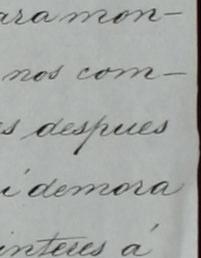 ara mon-
nos com-
s despues
i demora
interes á